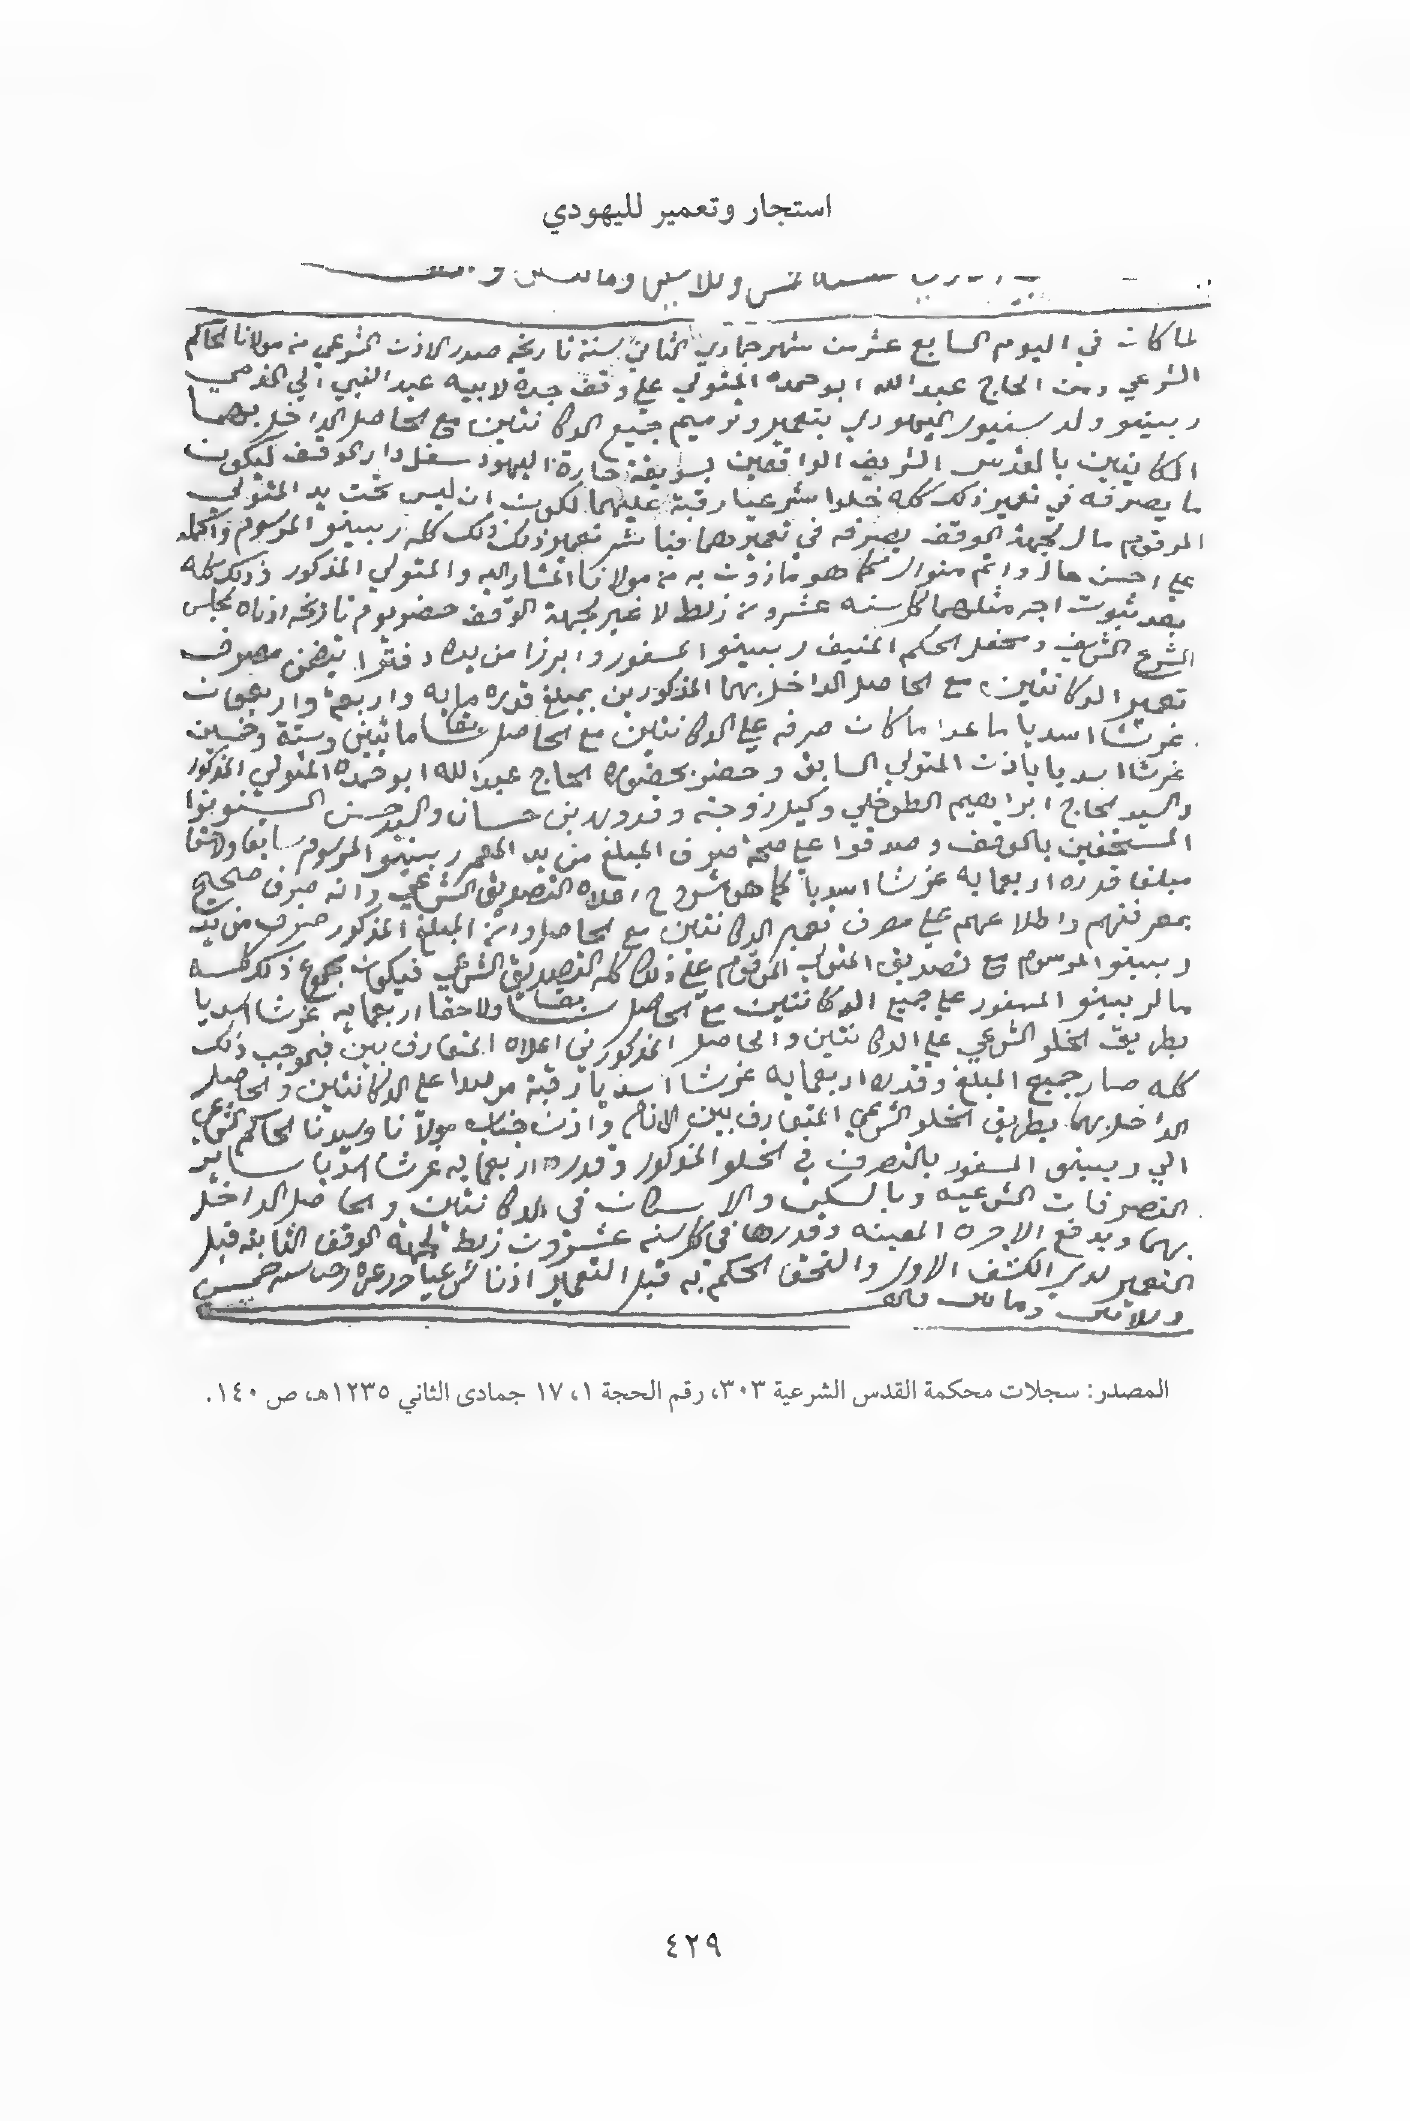 استجار وتعمير لليهودي
خمس وثلاثين ومائتين و
لما كان في اليوم السابع عشر من شهر جمادي الثاني سنة تاريخه صدر الاذن الشرعي من مولانا الحاكم
الشرعي ومن الحاج عبد الله ابو حمده المتولي علي وقف جده لابيه عبد النبي الي الذمي
ربينو ولد سنيور اليهودي بتعمير وترميم جميع الدكانتين مع الحاصل الداخل بهما
الكائنين بالقدس الشريف الواقعين بسويقة حارة اليهود سفل دار الوقف ليكون
ما يصرفه في تعمير ذلك كله خلوا شرعيا رقبة عليهما لكون ان ليس تحت يد المتولي
المرقوم مال لجهة الوقف يصرفه في تعميرهما فباشر تعمير ذلك كله ربينو المرسوم واكمله
علي احسن حال واتم منوال كما هو ماذون به من مولانا المشار اليه والمتولي المذكور ذلك كله
بعد ثبوت اجر مثلهما كل سنه عشرون زلطه لا غير لجهة الوقف حضر يوم تاريخه ادناه لمجلس
الشرع الشريف ومحفل الحكم المنيف ربينو المسفور وابرز من يده دفترا يتضمن مصرف
تعمير الدكانتين مع الحاصل الداخل بهما المذكورين بمبلغ قدره مايه واربعة واربعون
غرشا اسديا ما عدا ما كان صرفه علي الدكانتين مع الحاصل سابقا مائتين وستة وخمسين
غرشا اسديا باذن المتولي السابق وحضر بحضوره الحاج عبد الله ابو حمده المتولي المذكور
والسيد الحاج ابراهيم وكيل زوجته وقدوره بن حسان والسيد حسن
المستحقين بالوقف وصدقوا علي صحة صرف المبلغ من يد المعمر ربينو المرسوم سابقا ولاحقا
مبلغا قدره اربعمايه غرشا اسديا كما هو مشروح اعلاه التصديق الشرعي وانه صرف صحيح
بمعرفتهم واطلاعهم علي مصرف تعمير الدكانتين مع الحاصل وان المبلغ المذكور صرف من يد
ربينو المرسوم مع تصديق المتولي المرقوم علي ذلك كله التصديق الشرعي فيكون مجموع ذلك كله
مال ربينو المسفور علي جميع الدكانتين مع الحاصل سابقا ولاحقا اربعمايه غرشا اسديا
بطريق الخلو الشرعي علي الدكانتين والحاصل المذكورين اعلاه المتعارف بين فبموجب ذلك
كله صار جميع المبلغ وقدره اربعمايه غرشا اسديا رقبة مرصدا علي الدكانتين والحاصل
الداخل بهما بطريق الخلو الشرعي المتعارف بين الانام واذن جناب مولانا وسيدنا الحاكم الشرعي
الي ربينو المسفور بالتصرف في الخلو المذكور وقدره اربعمايه غرشا اسديا ساير
التصرفات الشرعيه وبالسكن والاسكان في الدكانتين والحاصل الداخل
بهما وبدفع الاجره المعينه وقدرها في كل سنه عشرون زلطه لجهة الوقف الثابته قبل
التعمير لدي الكشف الاول والتحق الحكم به قبل التعمير اذنا شرعيا وحرر في سنه خمس
وثلاثين ومائتين والف
المصدر: سجلات محكمة القدس الشرعية ٣٠٣، رقم الحجة ١، ١٧ جمادى الثاني ١٢٣٥هـ، ص ١٤٠.
٤٢٩